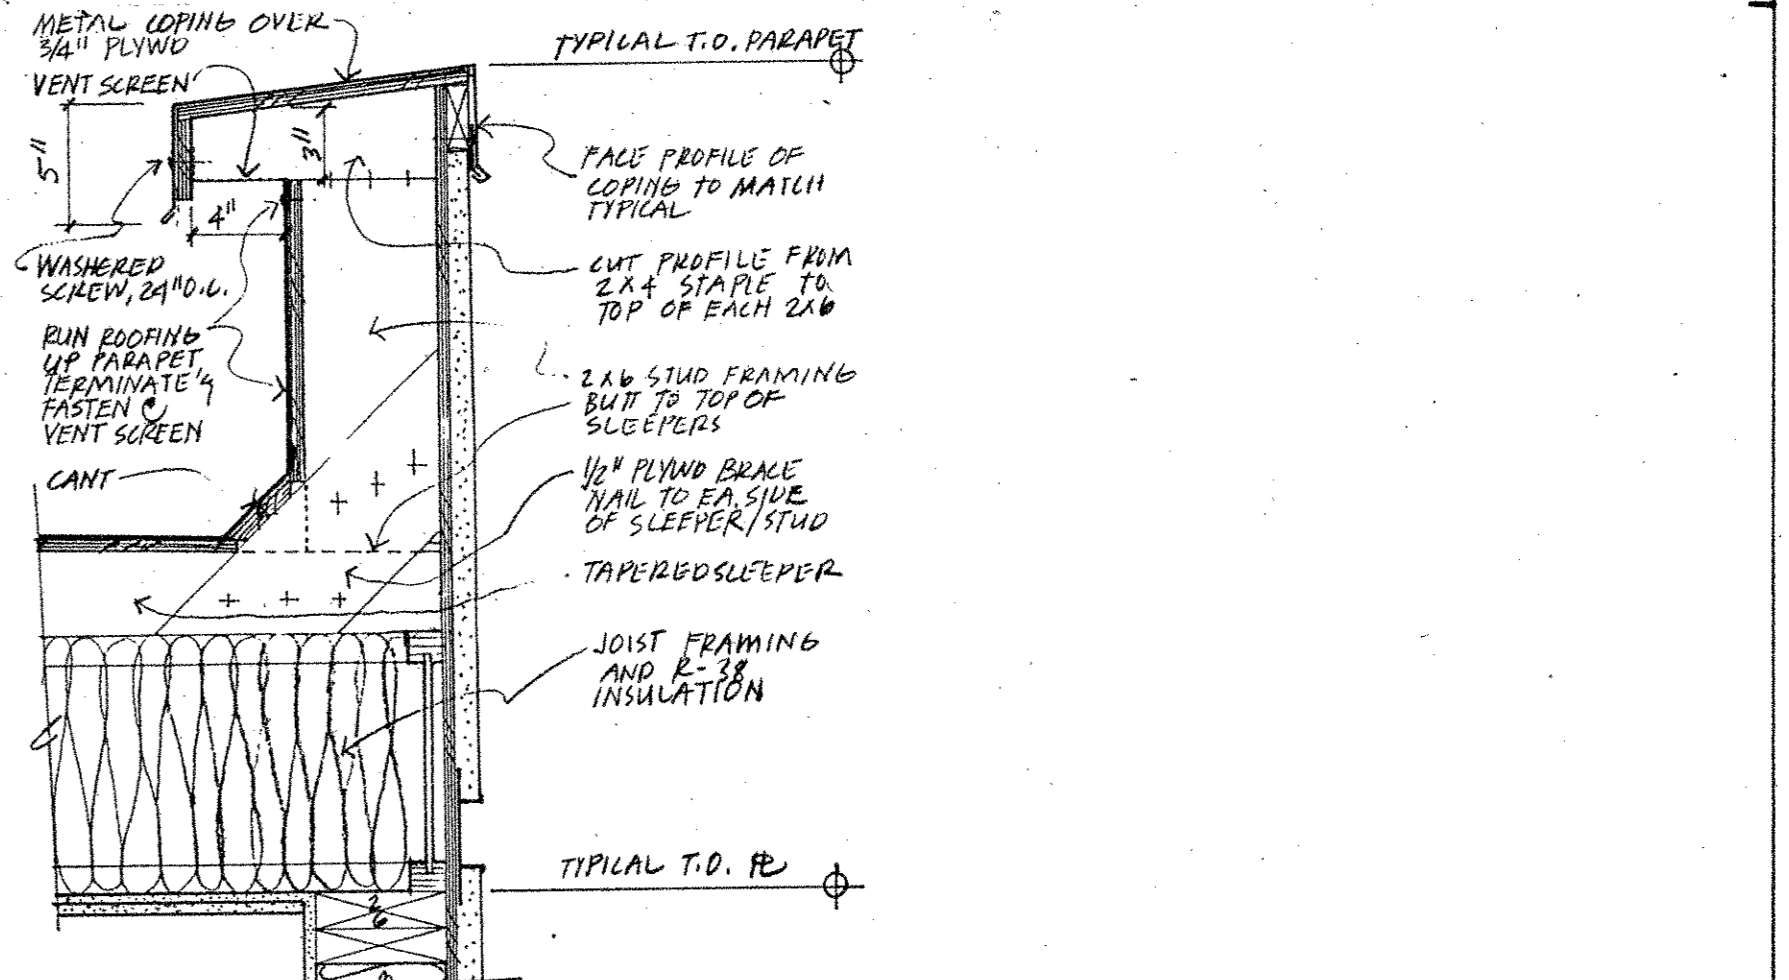 METAL COPING OVER
3/4" PLYWD
VENT SCREEN
5"
3"
4"
WASHERED
SCREW, 24" O.C.
RUN ROOFING
UP PARAPET,
TERMINATE &
FASTEN @
VENT SCREEN
CANT
TYPICAL T.O. PARAPET
FACE PROFILE OF
COPING TO MATCH
TYPICAL
CUT PROFILE FROM
2X4 STAPLE TO
TOP OF EACH 2X6
2X6 STUD FRAMING
BUTT TO TOP OF
SLEEPERS
1/2" PLYWD BRACE
NAIL TO EA. SIDE
OF SLEEPER/STUD
TAPERED SLEEPER
JOIST FRAMING
AND R-38
INSULATION
TYPICAL T.O. PL